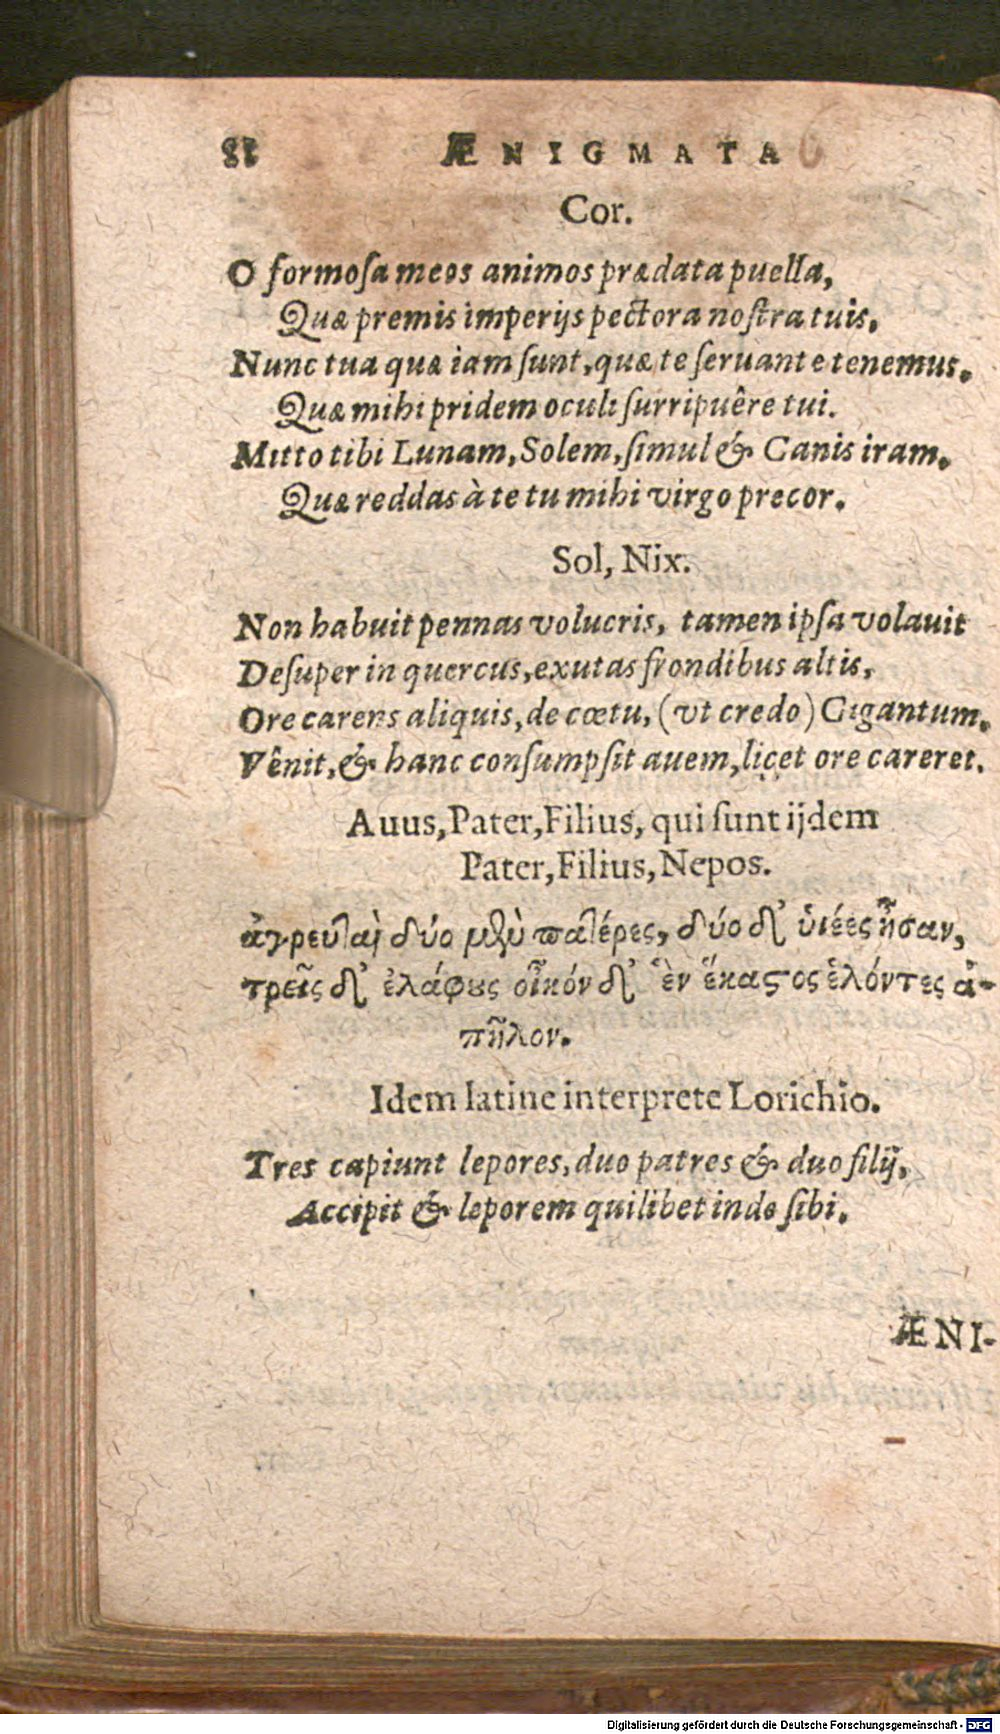 ÆNIGMATA
Cor.
O formoſa meos animos prædata puella,
Quæ premis imperijs pectora noſtra tuis,
Nunc tua quæ iam ſunt, quæ te ſeruante tenemus.
Quæ mihi pridem oculi ſurripuêre tui.
Mitto tibi Lunam, Solem, ſimul & Canis iram.
Quæ reddas à te tu mihi virgo precor.
Sol, Nix.
Non habuit pennas volucris, tamen ipſa volauit
Deſuper in quercus, exutas frondibus altis,
Ore carens aliquis, de cœtu, (vt credo) Gigantum.
Vênit, & hanc conſumpſit auem, licet ore careret.
Auus, Pater, Filius, qui ſunt ijdem
Pater, Filius, Nepos.
ἀγρευταὶ δύο μὲν πατέρες, δύο δ᾽ ὑιέες ἦσαν,
τρεῖς δ᾽ ἐλάφους οἶκόν δ᾽ ἓν ἕκαστος ἑλόντες ἀ-
πῆλον.
Idem latine interprete Lorichio.
Tres capiunt lepores, duo patres & duo filij,
Accipit & leporem quilibet inde ſibi.
ÆNI-
Digitalisierung gefördert durch die Deutsche Forschungsgemeinschaft - DFG